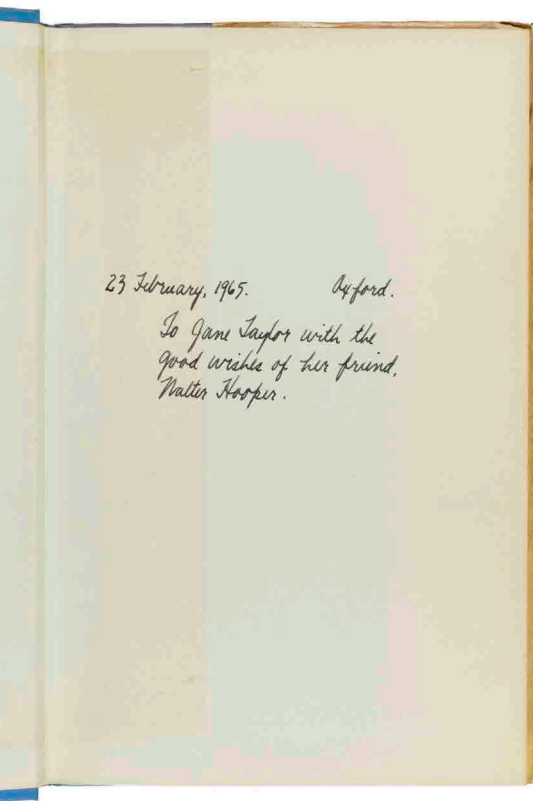 23 February, 1965. Oxford.
To Jane Taylor with the
good wishes of her friend,
Walter Hooper.